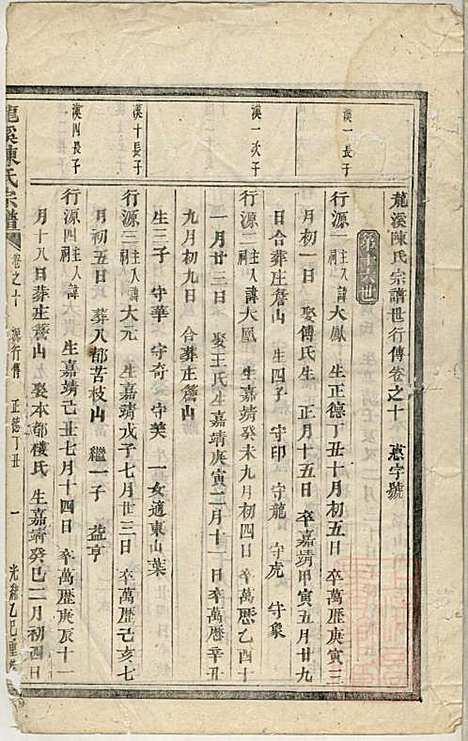 龍溪陳氏宗譜世行傳卷之十
漢一長子
行源一 主入祠 諱大鳳 生正德丁丑十月初五日 卒萬歷庚寅三
月初一日 娶傅氏生 正月十五日 卒嘉靖甲寅五月廿九
日合葬庄詹山 生四子 守印 守龍 守虎 守象
漢一次子
行源二 主入祠 諱大凰 生嘉靖癸未九月初四日 卒萬歷乙酉十
一月廿三日 娶王氏生嘉靖庚寅二月十一日 卒萬歷辛丑
九月初九日 合葬庄詹山
生三子 守華 守奇 守美 一女適東山葉
漢十長子
行源三 主入祠 諱大元 生嘉靖戊子七月廿三日 卒萬歷己亥七
月初五日 葬八都苦枝山 繼一子 益亨
漢四長子
行源四 主入祠 諱 生嘉靖己丑七月十四日 卒萬歷庚辰十一
月十八日葬庄詹山 娶本都樓氏 生嘉靖癸巳二月初四日
龍溪陳氏宗譜 卷之十 行傳 正德丁丑 一 光緒乙巳重